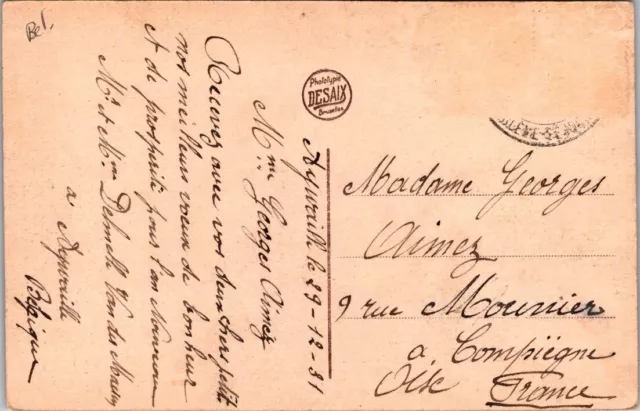 Bel.
Phototypie
DESAIX
Bruxelles
Aywaille le 29-12-31
Mme Georges Aimez
Recevez avec vos deux chers petits
nos meilleurs voeux de bonheur
et de prospérité pour l'an Nouveau
Mr et Mme Delmelle
à Aywaille
Belgique
Madame Georges
Aimez
9 rue Mounier
à Compiègne
Oise France